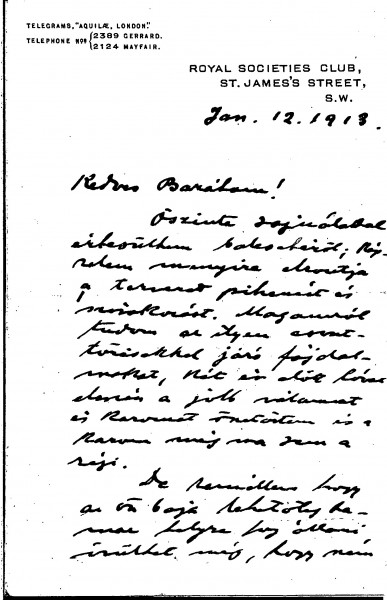 TELEGRAMS, "AQUILÆ, LONDON."
TELEPHONE Nos { 2389 GERRARD.
2124 MAYFAIR.
ROYAL SOCIETIES CLUB,
ST. JAMES'S STREET,
S.W.
Jan. 12. 1913.
Kedves Barátom!
Őszinte sajnálattal
értesültem balesetéről;
mennyire elrontja
a tervezett pihenést és
szórakozást. Magamról
tudom az ilyen csont-
törésekkel járó fájdal-
makat, két év előtt lóval
elesvén a jobb vállamat
és karomat törtem és a
karom még ma sem a
régi.
De remélem hogy
az ön baja lehetőleg ha-
mar helyre fog állani
még, hogy nem